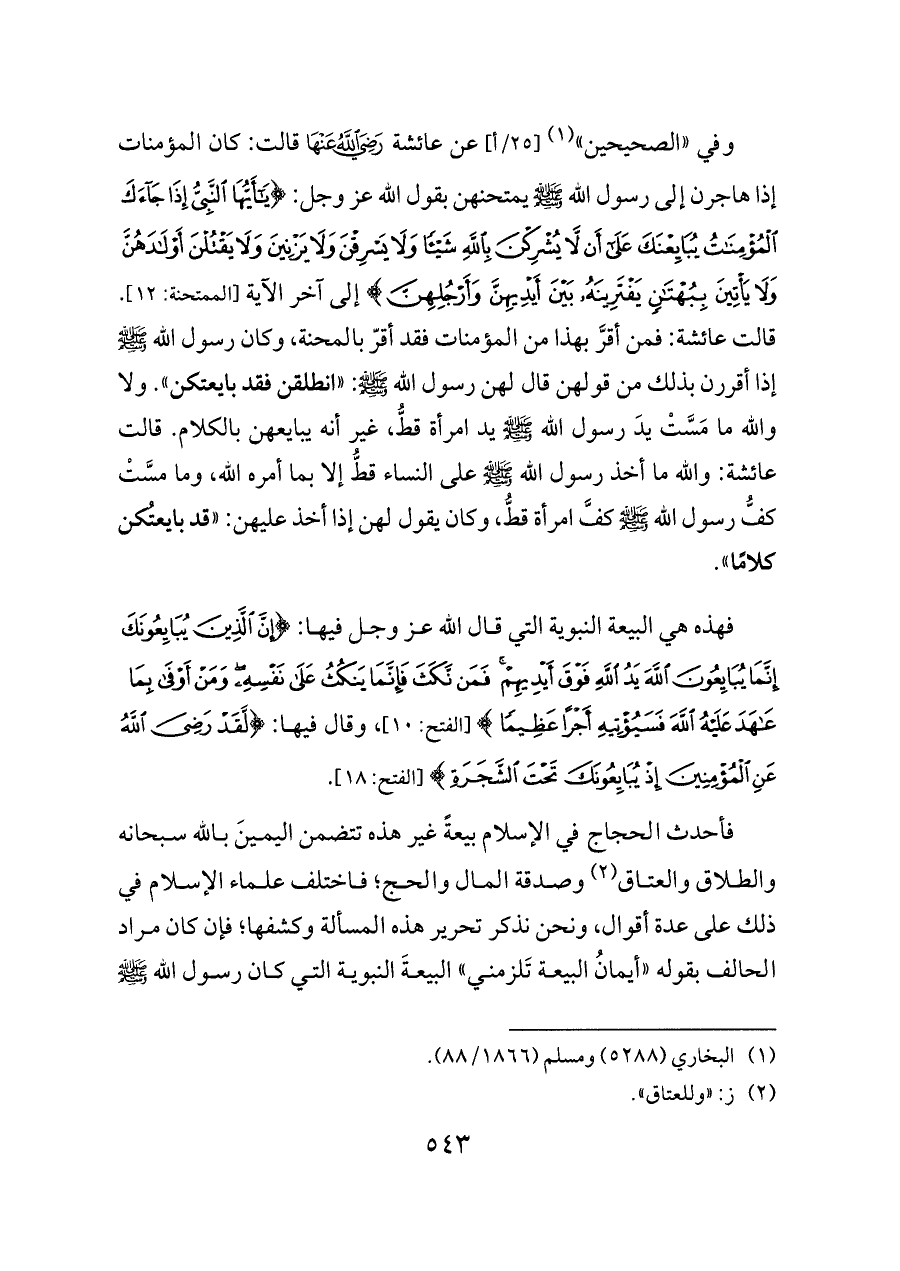 وفي «الصحيحين»(١) [٢٥/أ] عن عائشة رَضِيَ اللَّهُ عَنْهَا قالت: كان المؤمنات
إذا هاجرن إلى رسول الله ﷺ يمتحنهن بقول الله عز وجل: ﴿يَٰٓأَيُّهَا ٱلنَّبِىُّ إِذَا جَآءَكَ
ٱلْمُؤْمِنَٰتُ يُبَايِعْنَكَ عَلَىٰٓ أَن لَّا يُشْرِكْنَ بِٱللَّهِ شَيْـًٔا وَلَا يَسْرِقْنَ وَلَا يَزْنِينَ وَلَا يَقْتُلْنَ أَوْلَٰدَهُنَّ
وَلَا يَأْتِينَ بِبُهْتَٰنٍ يَفْتَرِينَهُۥ بَيْنَ أَيْدِيهِنَّ وَأَرْجُلِهِنَّ﴾ إلى آخر الآية [الممتحنة: ١٢].
قالت عائشة: فمن أقرَّ بهذا من المؤمنات فقد أقرّ بالمحنة، وكان رسول الله ﷺ
إذا أقررن بذلك من قولهن قال لهن رسول الله ﷺ: «انطلقن فقد بايعتكن». ولا
والله ما مَسَّتْ يدَ رسول الله ﷺ يد امرأة قطُّ، غير أنه يبايعهن بالكلام. قالت
عائشة: والله ما أخذ رسول الله ﷺ على النساء قطُّ إلا بما أمره الله، وما مسَّتْ
كفُّ رسول الله ﷺ كفَّ امرأة قطُّ، وكان يقول لهن إذا أخذ عليهن: «قد بايعتُكن
كلامًا».
فهذه هي البيعة النبوية التي قال الله عز وجل فيها: ﴿إِنَّ ٱلَّذِينَ يُبَايِعُونَكَ
إِنَّمَا يُبَايِعُونَ ٱللَّهَ يَدُ ٱللَّهِ فَوْقَ أَيْدِيهِمْ ۚ فَمَن نَّكَثَ فَإِنَّمَا يَنكُثُ عَلَىٰ نَفْسِهِۦ ۖ وَمَنْ أَوْفَىٰ بِمَا
عَٰهَدَ عَلَيْهُ ٱللَّهَ فَسَيُؤْتِيهِ أَجْرًا عَظِيمًا﴾ [الفتح: ١٠]، وقال فيها: ﴿لَّقَدْ رَضِىَ ٱللَّهُ
عَنِ ٱلْمُؤْمِنِينَ إِذْ يُبَايِعُونَكَ تَحْتَ ٱلشَّجَرَةِ﴾ [الفتح: ١٨].
فأحدث الحجاج في الإسلام بيعةً غير هذه تتضمن اليمينَ بالله سبحانه
والطلاق والعتاق(٢) وصدقة المال والحج؛ فاختلف علماء الإسلام في
ذلك على عدة أقوال، ونحن نذكر تحرير هذه المسألة وكشفها؛ فإن كان مراد
الحالف بقوله «أيمانُ البيعة تَلزمني» البيعةَ النبوية التي كان رسول الله ﷺ
(١) البخاري (٥٢٨٨) ومسلم (١٨٦٦/ ٨٨).
(٢) ز: «وللعتاق».
٥٤٣